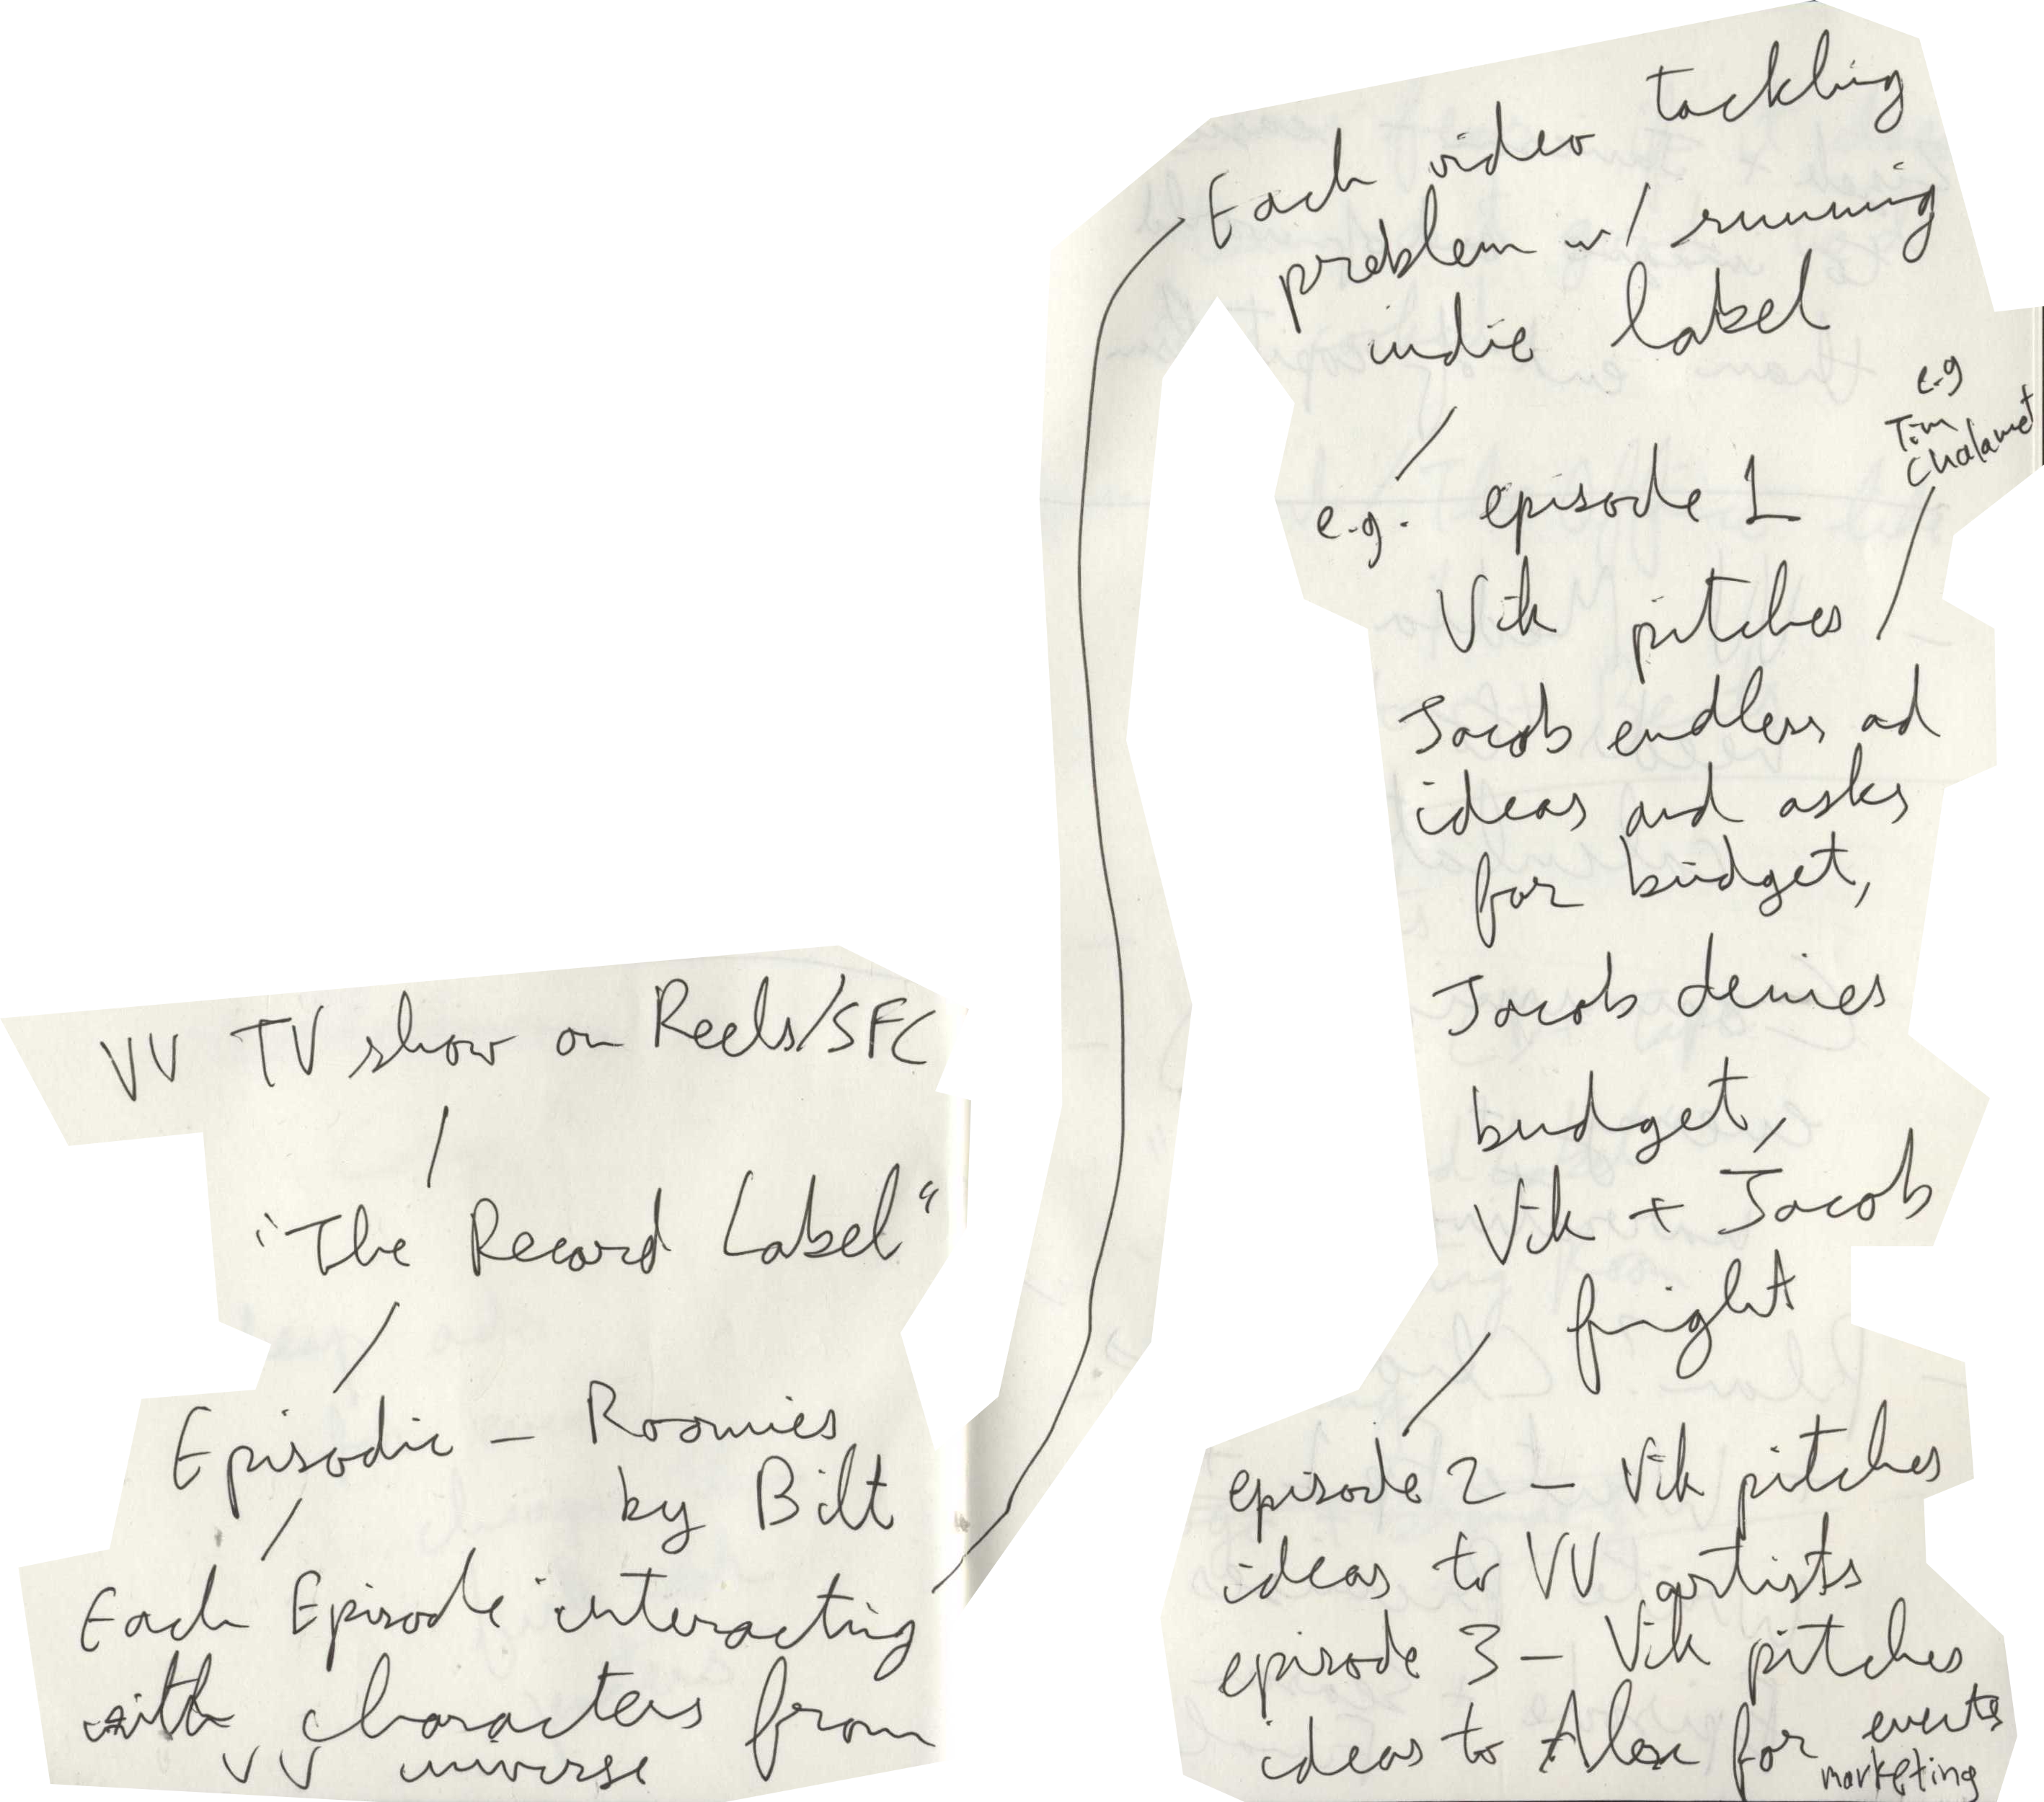 VV TV show on Reels/SFC
"The Record Label"
Episodic – Roomies
by Bilt
Each Episode interacting
with characters from
VV universe
Each video tackling
problem w/ running
indie label
e.g
Tim
Chalamet
e.g. episode 1
Vik pitches
Jacob endless ad
ideas and asks
for budget,
Jacob denies
budget,
Vik + Jacob
fright
episode 2 – Vik pitches
ideas to VV artists
episode 3 – Vik pitches
ideas to Alex for events
marketing